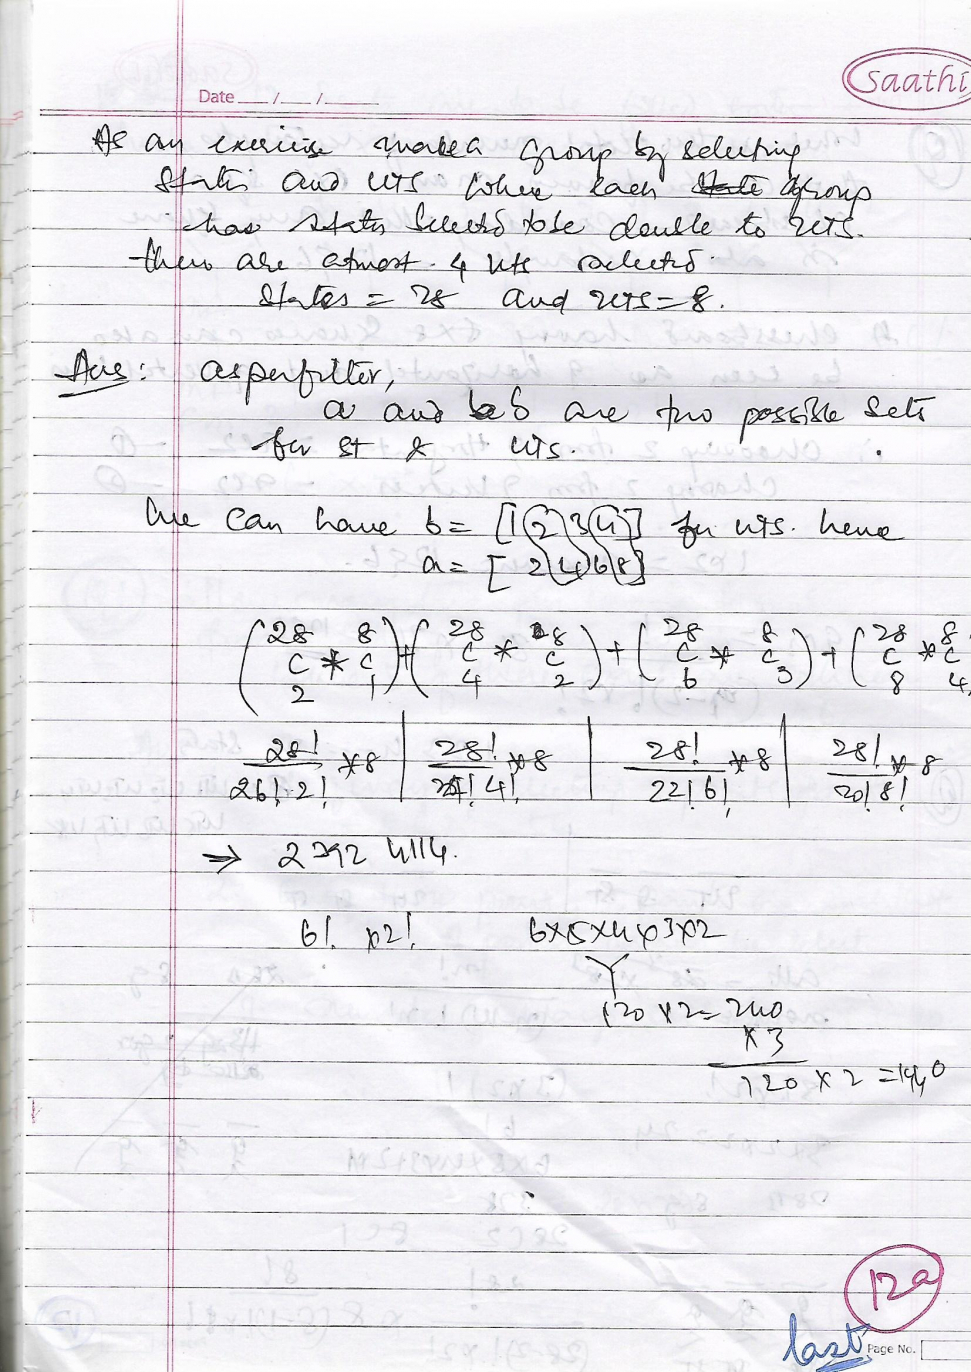 Saathi
Date __/__/____
As an exercise make a group by selecting
States and UTS where each State group
has States Selected to be double to UTS.
there are atmost 4 UTs selected.
States = 28 and UTS = 8.
Ans: as per filter,
a and b are two possible Sets
for St & UTS.
We can have b = [1 2 3 4] for UTS. hence
a = [ 2 4 6 8 ]
(28 C 2 * 8 C 1) + (28 C 4 * 8 C 2) + (28 C 6 * 8 C 3) + (28 C 8 * 8 C 4
28! / 26! 2! * 8 | 28! / 24! 4! * 8 | 28! / 22! 6! * 8 | 28! / 20! 8! * 8
⇒ 2792 4114.
6! x 2! 6x5x4x3x2
120 x 2 = 240
x 3
720 x 2 = 1440
12a
last
Page No.